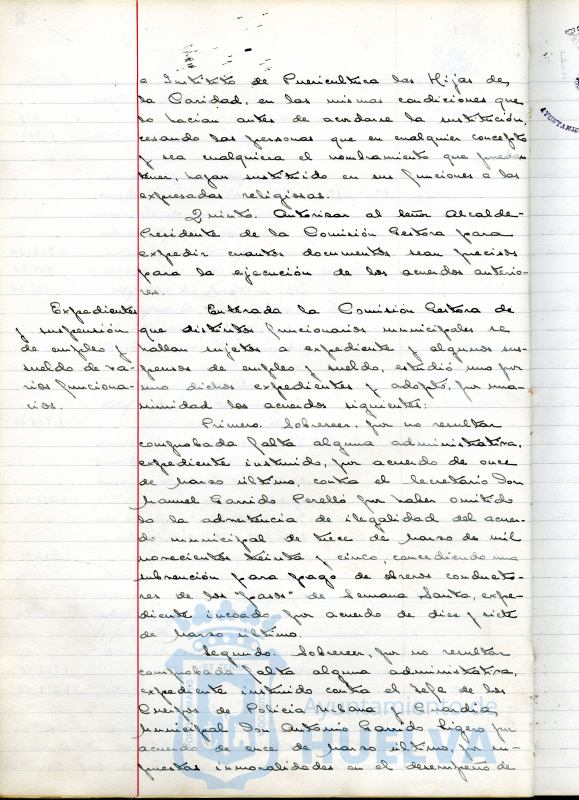 e Instituto de Puericultura las Hijas de
la Caridad, en las mismas condiciones que
lo hacían antes de acordarse la sustitución,
cesando las personas que en cualquier concepto
y sea cualquiera el nombramiento que puedan
tener, hayan sustituido en sus funciones a las
expresadas religiosas.
Quinto. Autorizar al Señor Alcalde-
Presidente de la Comisión Gestora para
expedir cuantos documentos sean precisos
para la ejecución de los acuerdos anterio-
res.
Expedientes
y suspensión
de empleo y
sueldo de va-
rios funciona-
rios.
Enterada la Comisión Gestora de
que distintos funcionarios municipales se
hallan sujetos a expediente y algunos sus-
pensos de empleo y sueldo, estudió uno por
uno dichos expedientes y adoptó, por una-
nimidad los acuerdos siguientes:
Primero. Sobreseer, por no resultar
comprobada falta alguna administrativa,
expediente instruido, por acuerdo de once
de Marzo último, contra el Secretario Don
Manuel Garrido Perelló por haber omitido
la advertencia de ilegalidad del acuer-
do municipal de trece de Marzo de mil
novecientos treinta y cinco, concediendo una
subvención para pago de obreros conducto-
res de los "pasos" de Semana Santa, expe-
diente incoado por acuerdo de diez y siete
de Marzo último.
Segundo. Sobreseer, por no resultar
comprobada falta alguna administrativa,
expediente instruido contra el Jefe de los
Cuerpos de Policía urbana y Guardia
Municipal Don Antonio Garrido Ligero por
acuerdo de once de Marzo último, por su-
puestas inmoralidades en el desempeño de
Ayuntamiento de
HUELVA